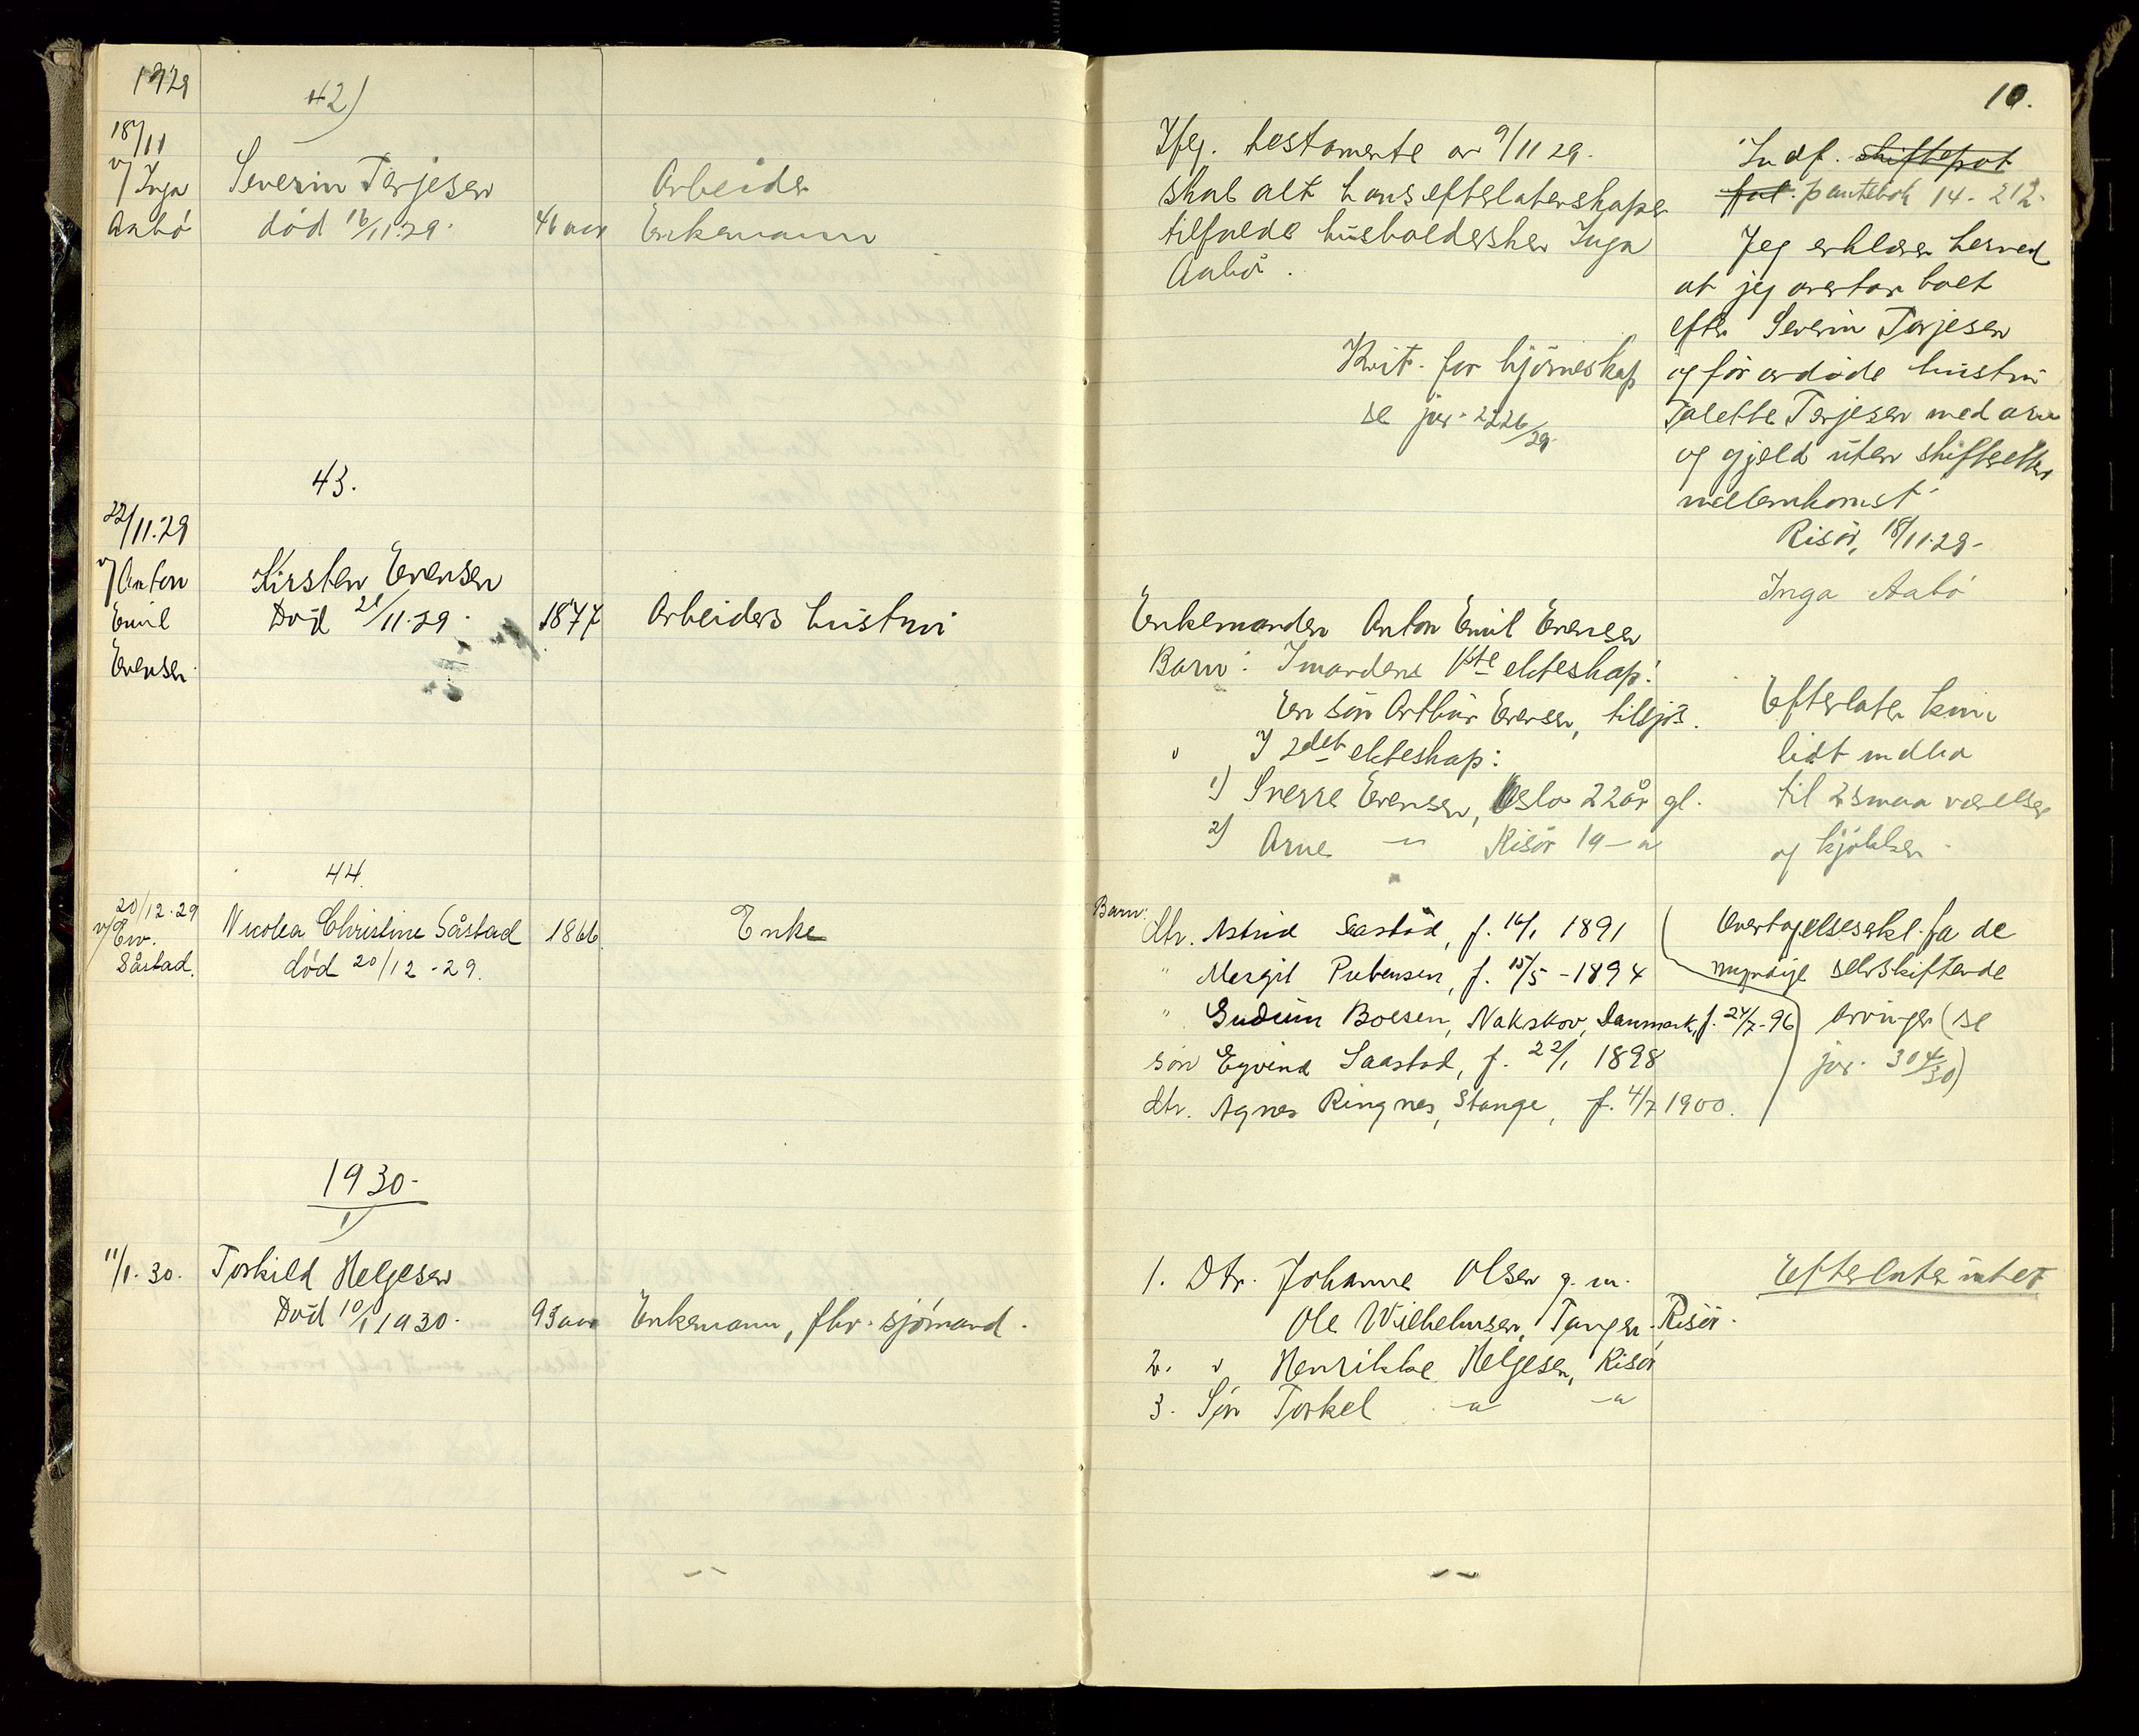 10.
1929
42)
18/11
v/ Inga
Aabö
Severin Terjesen
död 16/11 29.
46 aar
Arbeider
Enkemann
Ifg. testamente av 9/11 29.
skal alt hans efterlatenskaper
tilfalde husholdersken Inga
Aabö.
Kvit. for hjörneskap
se jnr. 2226/29
Indf. skifteprot
fol. pantebok 14 - 212.
Jeg erklærer herved
at jeg overtar boet
efter Severin Terjesen
og för avdöde hustru
Talette Terjesen med arv
og gjeld uten skifterettens
mellemkomst.
Risör, 18/11 29 -
Inga Aabö
43.
22/11.29
v/ Anton
Emil
Evensen
Kirsten Evensen
Död 21/11.29.
1877
Arbeiders hustru
Enkemanden Anton Emil Evensen
Barn: I mandens 1ste ekteskap:
En sön Arthur Evensen, tilsjös.
" I 2det ekteskap:
1) Sverre Evensen, Oslo 22 år gl.
2) Arne - " Risör 19 - "
Efterlater kun
lidt indbo
til 2 smaa værelser
og kjökken.
44.
20/12.29
v/ Eiv.
Såstad.
Nicolea Christine Såstad
död 20/12 - 29.
1866.
Enke
Barn:
dtr. Astrid Saastad, f. 16/1 1891
" Margit Prebensen, f. 15/5 - 1894
" Gudrun Boesen, Nakskov, Danmark, f. 24/7 - 96
sön Eyvind Saastad, f. 22/1 1898
dtr. Agnes Ringnes, Stange, f. 4/7 1900.
Overtagelseserkl. fra de
myndige selvskiftende
arvinger (se
jnr. 304/30)
1930.
1)
11/1. 30.
Torkild Helgesen
Död 10/1 1930.
93 aar
Enkemann, fhv. sjömand.
1. Dtr. Johanne Olsen g. m.
Ole Wilhelmsen, Tangen - Risör.
2. " Henrikke Helgesen, Risör
3. Sön Torkel - " - "
Efterlater intet